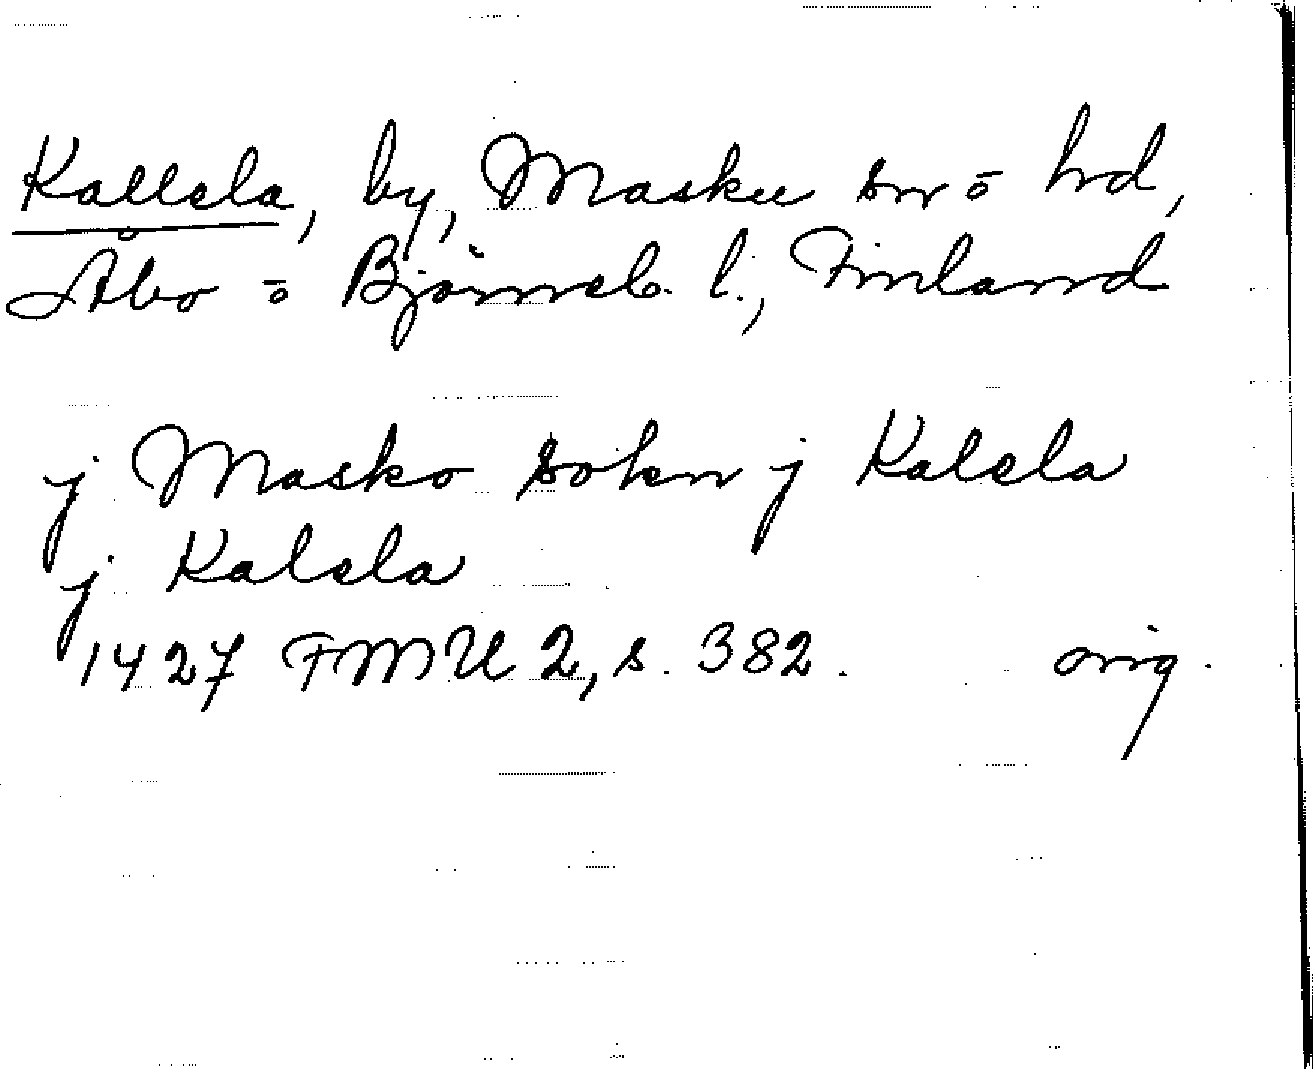 Kallela, by, Masku sn ö hd,
Åbo ö Björneb. l., Finland
j Masko sokn j Kalela
j Kalela
1427 FMU 2, s. 382. orig.